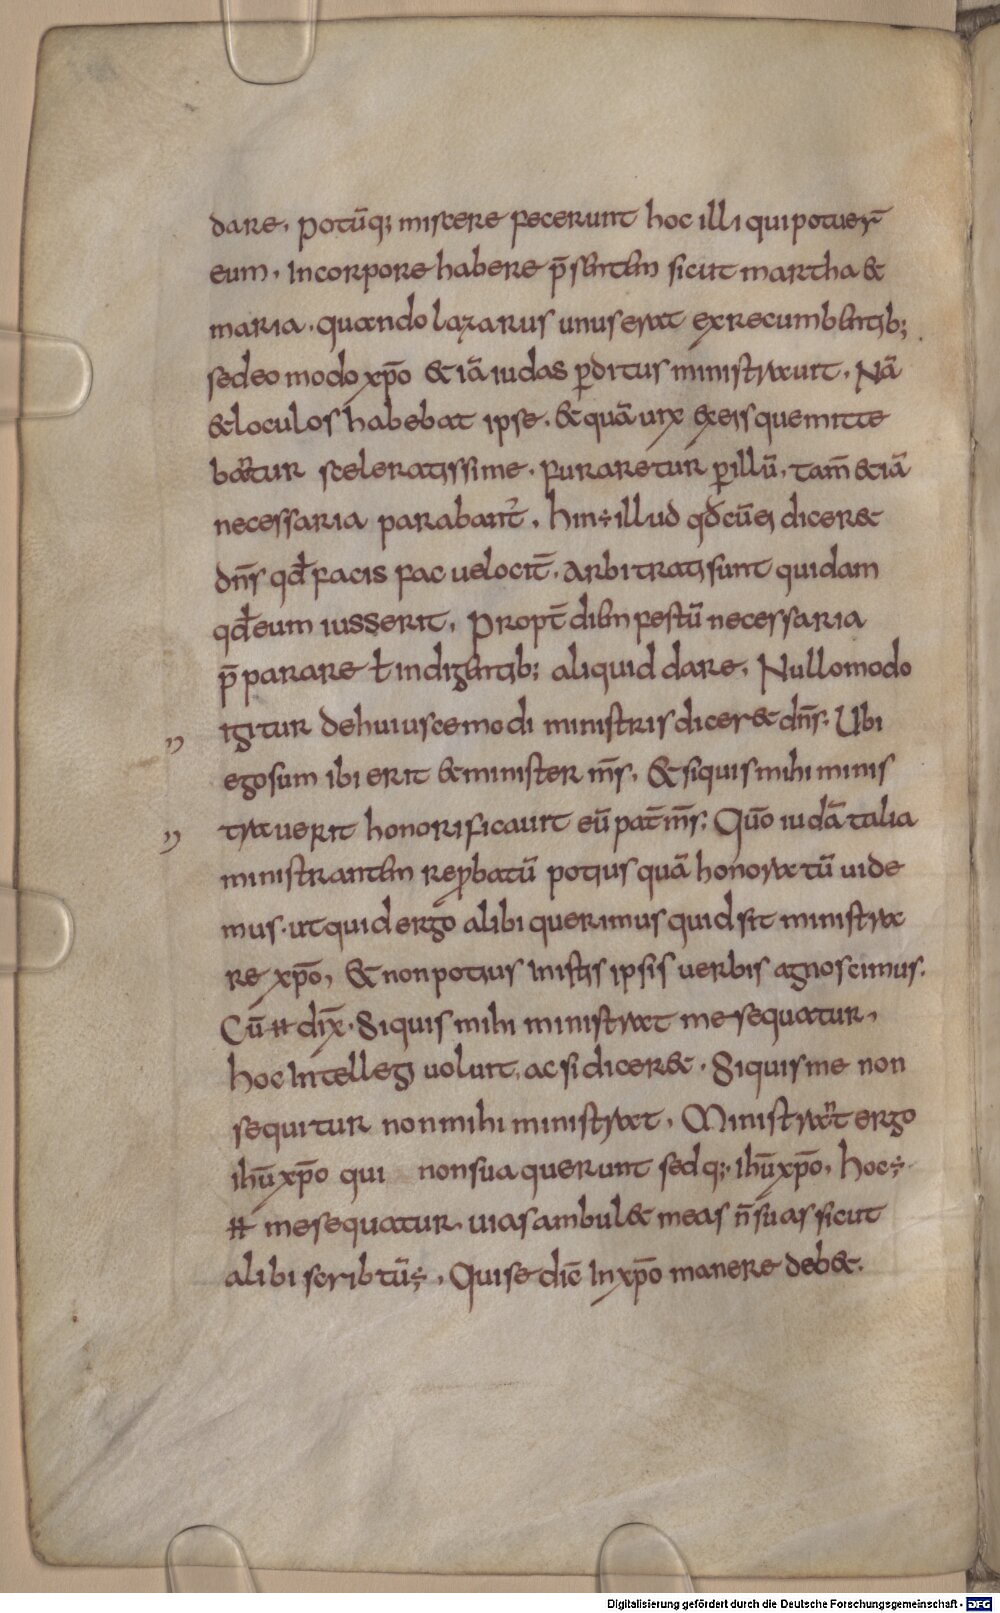 dare, potūq; miscere fecerunt hoc illi qui potuer̄
eum, in corpore habere p̄sentem sicut martha &
maria. quando lazarus unus erat ex recumbentib;
sed eo modo xp̄o & iā iudas p̄ditus ministrauit, Nā
& loculos habebat ipse. & quā uix ex eis que mitte
bantur sceleratissime. furaretur p̄ illū, tam̄ & iā
necessaria parabant̉. hin ÷ illud qđ cū ei dicer&
dn̄s qđ facis fac uelocit̄. arbitrati sunt quidam
qđ eum iusserit, Propt̄ diem festū necessaria
p̄parare ł indigentib; aliquid dare, Nullo modo
igitur de huiuscemodi ministris dicer& dn̄s; Ubi
ego sum ibi erit & minister m̄s, & siquis mihi minis
trauerit honorificauit eū pat̄ m̄s; Quō iudā talia
ministrantem rep̱batū potius quā honoratū uide
mus. ut quid ergo alibi querimus quid sit ministra
re xp̄o, & non potius in istis ipsis uerbis agnoscimus.
Cū ħ dix̄. Siquis mihi ministrat me sequatur,
hoc intellegi uoluit, ac si dicer&. Siquis me non
sequitur non mihi ministrat, Ministrant ergo
ihū xp̄o qui non sua querunt sed q;. ihū xp̄o, hoc ÷
ħ me sequatur. uias ambul& meas n̄ suas sicut
alibi scribtū ÷, Qui se dic̄ in xp̄o manere deb&.
Digitalisierung gefördert durch die Deutsche Forschungsgemeinschaft - DFG